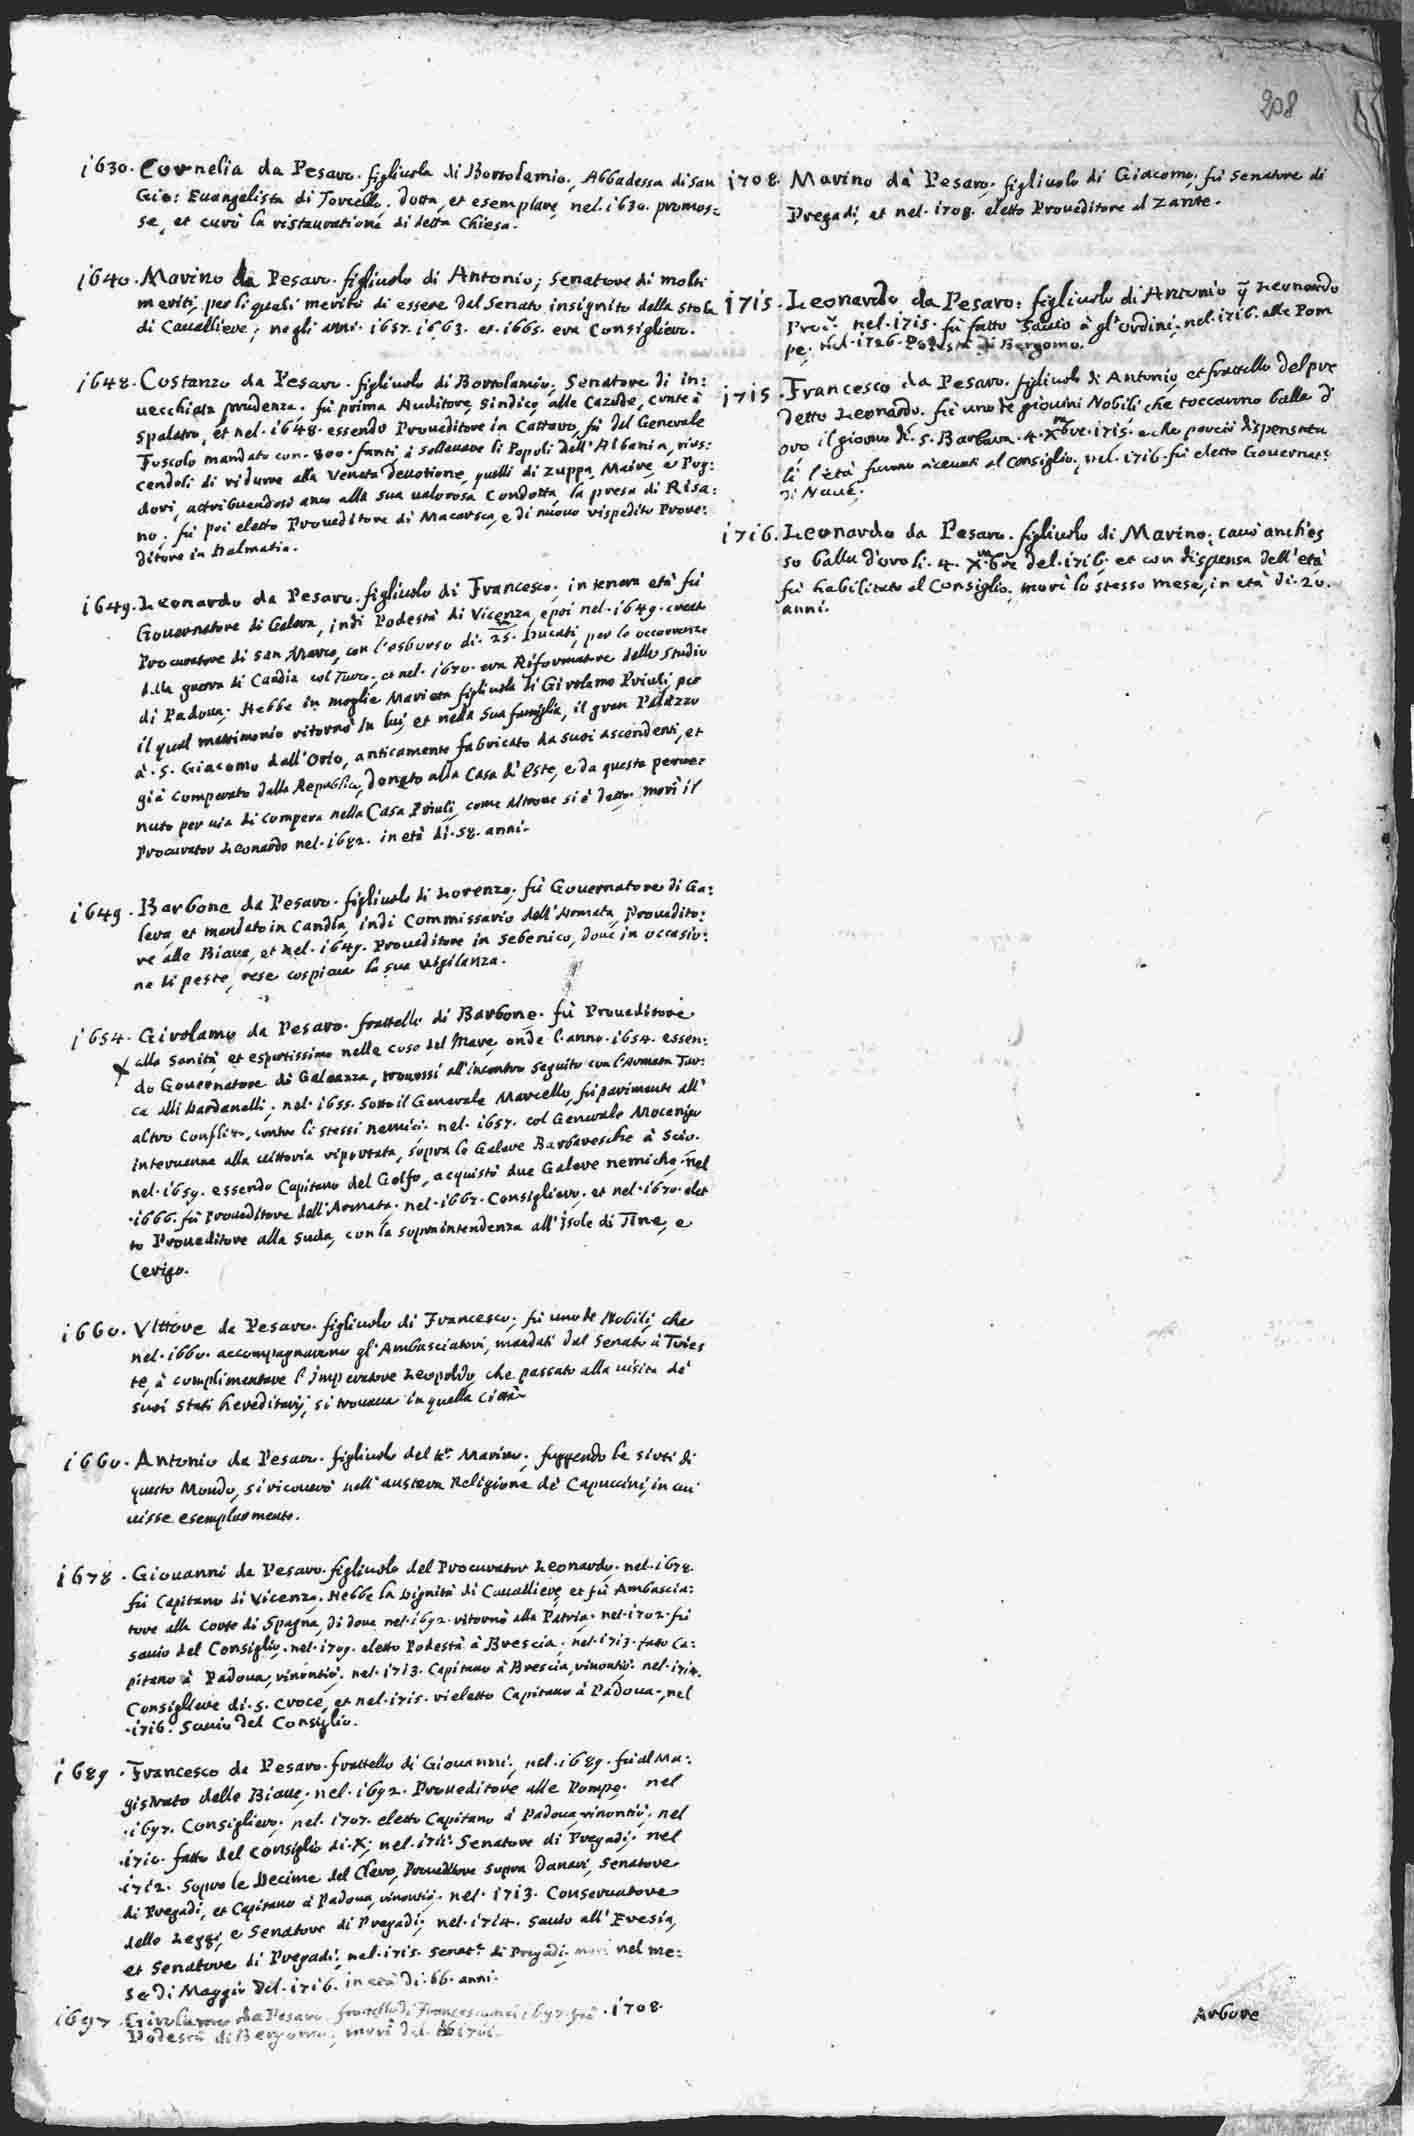 208
1630. Cornelia da Pesaro. figliuola di Bortolamio, Abbadessa di San
Gio: Euangelista di Torcello. dotta, et esemplare, nel. 1630. promos:
se, et curò la ristauratione di detta Chiesa.
1640. Marino da Pesaro. figliuolo di Antonio; Senatore di molti
meriti, per li quali meritò di essere dal Senato insignito della Stola
di Cauallliere; negli anni. 1657. 1663. et. 1665. era Consigliere.
1648. Costanzo da Pesaro. figliuolo di Bortolamio; Senatore di in:
uecchiata prudenza. fù prima Auditore, Sindico, alle Cazude, conte à
Spalatro, et nel. 1648. essendo Proueditore in Cattaro, fù del Generale
Foscolo mandato con. 800. fanti à solleuare li Popoli dell'Albania, rius:
cendoli di ridurre alla Veneta deuotione, quelli di Zuppa, Maine, e Pog:
dori, attribuendosi anco alla sua ualorosa condotta, la presa di Risa:
no, fù poi eletto Proueditore di Macarsca, e di nuouo rispedito Proue:
ditore in Dalmatia.
1649. Leonardo da Pesaro. figliuolo di Francesco, in tenera età fù
Gouernatore di Galera, indi Podestà di Vicenza, e poi nel. 1649. creato
Procuratore di San Marco, con l'esborso di. 25. Ducati, per le occorrenze
della guerra di Candia col Turco; et nel. 1670. era Riformatore dello Studio
di Padoua. Hebbe in moglie Marieta figliuola di Girolamo Priuli, per
il qual matrimonio ritornò in lui, et nella sua famiglia, il gran Palazzo
à. S. Giacomo dall'Orio, anticamente fabricato da suoi ascendenti, et
già comperato dalla Republica, donato alla Casa d'Este, e da questa perue:
nuto per uia di compera nella Casa Priuli, come altroue si è detto. morì il
Procurator Leonardo nel. 1682. in età di. 58. anni.
1649. Barbone da Pesaro. figliuolo di Lorenzo, fù Gouernatore di Ga:
lera, et mandato in Candia, indi Commissario dell'Armata, Prouedito:
re alle Biaue, et nel. 1649. Proueditore in Sebenico, doue in occasio:
ne di peste, rese cospicua la sua uigilanza.
1654. Girolamo da Pesaro. frattello di Barbone. fù Proueditore
alla Sanità, et espertissimo nelle cose del Mare, onde l'anno. 1654. essen:
do Gouernatore di Galeazza, trouossi all'incontro seguito con l'Armata Tur:
ca alli Dardanelli; nel. 1655. sotto il Generale Marcello, fù parimente all'
altro conflito, contro li stessi nemici. nel. 1657. col Generale Mocenigo
interuenne alla uittoria riportata, sopra le Galere Barbaresche à Scio.
nel. 1659. essendo Capitano del Golfo, acquistò due Galere nemiche, nel
.1666. fù Proueditore dell'Armata. nel. 1667. Consigliere, et nel. 1670. elet
to Proueditore alla Suda, con la sopraintendenza all'Isole di Tine, e
Cerigo.
1660. Vittore da Pesaro. figliuolo di Francesco; fù uno de Nobili, che
nel. 1660. accompagnarono gl'Ambasciatori, mandati dal Senato à Tries
te, à complimentare l'Imperatore Leopoldo, che passato alla uisita de'
suoi Stati hereditarij, si trouaua in quella Città.
1660. Antonio da Pesaro. figliuolo del K.r Marino; fuggendo le sirti di
questo Mondo, si ricouerò nell'austera Religione de' Capuccini, in cui
uisse esemplarmente.
1678. Giouanni da Pesaro. figliuolo del Procurator Leonardo. nel. 1678.
fù Capitano di Vicenza. Hebbe la Dignità di Cauallliere, et fù Ambascia:
tore alla Corte di Spagna, di doue nel. 1692. ritornò alla Patria. nel. 1702. fù
sauio del Consiglio. nel. 1709. eletto Podestà à Brescia. nel. 1713. fatto Ca:
pitano à Padoua, rinontiò. nel. 1713. Capitano à Brescia, rinontiò. nel. 1714.
Consigliere di. S. Croce, et nel. 1715. rieletto Capitano à Padoua, nel
.1716. Sauio del Consiglio.
1689. Francesco da Pesaro. frattello di Giouanni. nel. 1689. fù al Ma:
gistrato delle Biaue, nel. 1692. Proueditore alle Pompe. nel
.1697. Consigliere. nel. 1707. eletto Capitano à Padoua, rinontiò. nel
.1710. fatto del Consiglio di. X; nel. 1711. Senatore di Pregadi. nel
.1712. sopra le Decime del Clero, Proueditore sopra Danari, Senatore
di Pregadi, et Capitano à Padoua, rinontiò. nel. 1713. Conseruatore
delle Leggi, e Senatore di Pregadi, nel. 1714. Sauio all'Eresia,
et Senatore di Pregadi, nel. 1715. Senat.e di Pregadi. morì nel me:
se di Maggio del. 1716. in età di. 66. anni.
1697. Girolamo da Pesaro. frattello di Francesco nel. 1697. fù .1708.
Podestà di Bergomo; morì del
1708. Marino da Pesaro, figliuolo di Giacomo; fù Senatore di
Pregadi, et nel. 1708. eletto Proueditore al Zante.
1715. Leonardo da Pesaro: figliuolo di Antonio q̃ Leonardo
Proc.r nel. 1715. fù fatto Sauio à gl'ordini, nel. 1716. alle Pom
pe. Nel. 1726. Podestà di Bergomo.
1715. Francesco da Pesaro. figliuolo di Antonio, et frattello del pre
detto Leonardo. fù uno de giouini Nobili che toccarono balla d'
oro il giorno di. S. Barbara. 4. Xmbre. 1715. e che perciò dispensata
li l'età furono riceuuti al Consiglio, nel. 1716. fù eletto Gouernat:r
di Naue.
1716. Leonardo da Pesaro. figliuolo di Marino; cauò anch'es
so balla d'oro li. 4. Xmbre del. 1716. et con dispensa dell'età
fù habilitato al Consiglio, morì lo stesso mese, in età di. 20.
anni.
Arbore